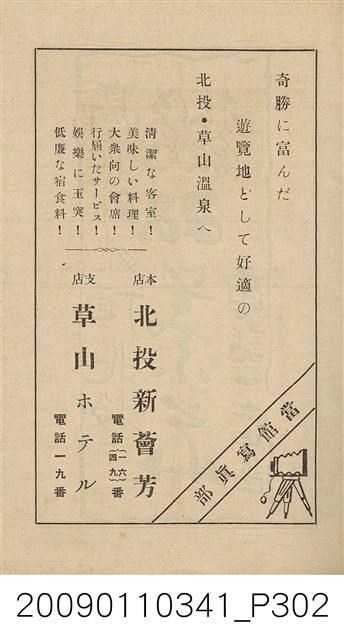 奇勝に富んだ
遊覽地として好適の
北投・草山溫泉へ
清潔な客室！
美味しい料理！
大衆向の會席！
行屆いたサービス！
娛樂に玉突！
低廉な宿食料！
本店 北投新薈芳
電話（一六四九）番
支店 草山ホテル
電話一九番
當館寫眞部
20090110341_P302